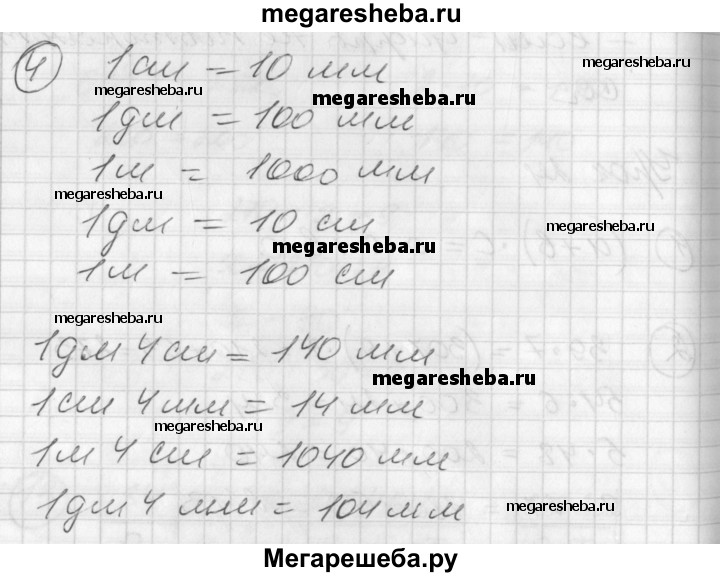 megaresheba.ru
4 1 см = 10 мм
megaresheba.ru
megaresheba.ru
1 дм = 100 мм
1 м = 1000 мм
megaresheba.ru
1 дм = 10 см
megaresheba.ru
megaresheba.ru
1 м = 100 см
megaresheba.ru
1 дм 4 см = 140 мм
megaresheba.ru
1 см 4 мм = 14 мм
megaresheba.ru
1 м 4 см = 1040 мм
1 дм 4 мм = 104 мм
megaresheba.ru
Мегарешеба.ру